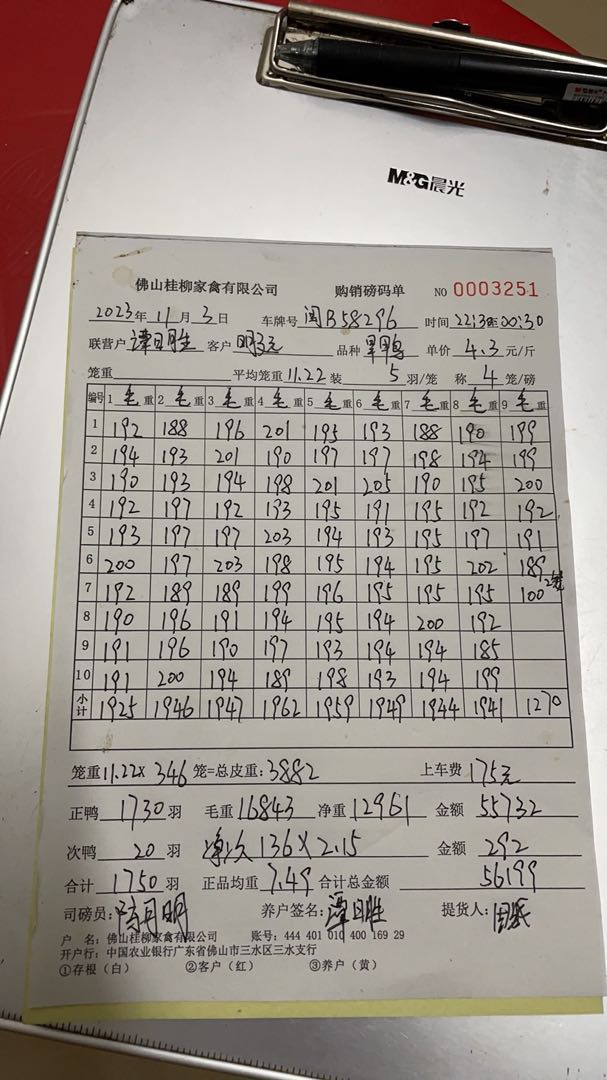 M&G晨光
佛山桂柳家禽有限公司 购销磅码单 NO 0003251
2023年 11月 3日 车牌号 闽B58296 时间 22:30至00:30
联营户 谭日胜 客户 品种 单价 4.3 元/斤
笼重 平均笼重 11.22 装 5 羽/笼 称 4 笼/磅
编号 1 毛重 2 毛重 3 毛重 4 毛重 5 毛重 6 毛重 7 毛重 8 毛重 9 毛重
1 192 188 196 201 195 193 188 190 199
2 194 193 201 190 197 197 198 194 199
3 190 193 194 198 201 205 190 195 200
4 192 197 192 193 195 191 195 192 192
5 193 197 197 203 194 193 195 197 191
6 200 197 203 198 195 194 195 202 189
7 192 189 189 199 196 195 195 195 100 2笼
8 190 196 191 194 195 194 200 192
9 191 196 190 197 193 194 194 185
10 191 200 194 189 198 193 194 199
小计 1925 1946 1947 1962 1959 1949 1944 1941 1270
笼重 11.22X 346 笼=总皮重: 3882 上车费 175元
正鸭 1730 羽 毛重 16843 净重 12961 金额 55732
次鸭 20 羽 136X2.15 金额 292
合计 1750 羽 正品均重 7.49 合计总金额 56199
司磅员: 养户签名: 谭日胜 提货人:
户 名: 佛山桂柳家禽有限公司 账号: 444 401 010 400 169 29
开户行: 中国农业银行广东省佛山市三水区三水支行
①存根(白) ②客户(红) ③养户(黄)